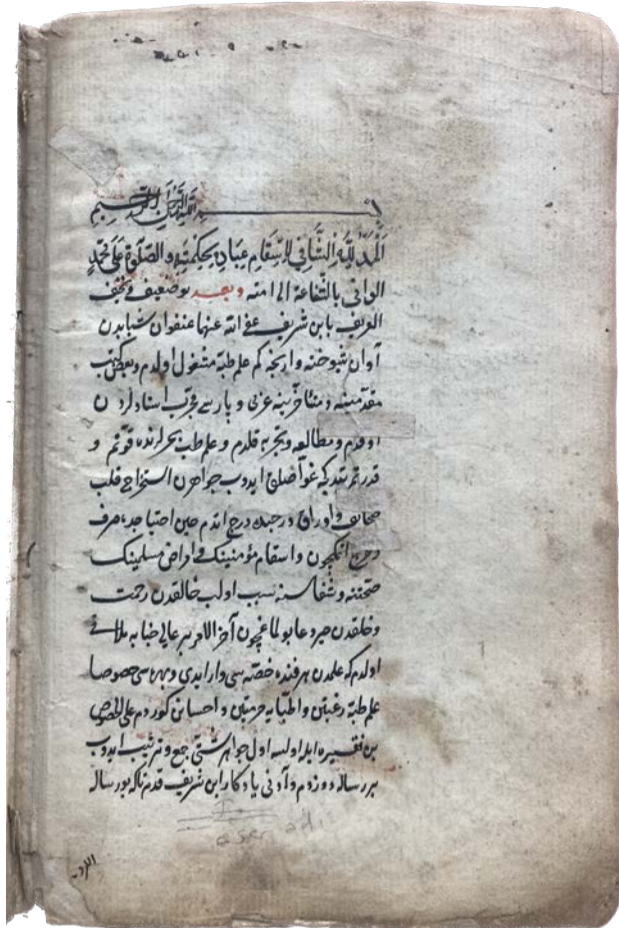 بسم الله الرحمن الرحيم
الحمد لله الشافي لاسقام عباده بحكمته والصلوة على محمد
الواتى بالشفاعة الى امته وبعد بو ضعيف و نحيف
العريف بابن شريف عفى الله عنها عنفوان شبابدن
آوان شيوخته وارنجه كم علم طبه مشغول اولدم و بعض كتب
متقدمينه و متأخرينه عربى و پارسى مجرب استادلردن
اوقدم و مطالعه و تجربه قلدم و علم طب بحرلرنده قوتم و
قدرتم يتدكجه غواصلق ايدوب جواهرن استخراج قلب
صحايف و اوراق درجنده درج اتدم حين احتياجده صرف
و خرج اتمكچون و اسقام مؤمنينك و امراض مسلمينك
صحتنه و شفاسنه سبب اولب خالقدن رحمت
و خلقدن خير دعا بولماغچون آخر الامر بر عالى جنابه
اولدم كه علمدن هر فنده حصه سى وار ايدى و بهره سى خصوصا
علم طبه رغبتن و اطبايه حرمتن و احسانن كوردم على الخصوص
بن فقيره ايدر اولسه اول جواهر جمع و ترتيب ايدوب
بر رساله دوزدم و آدنى يادكار ابن شريف قدم تاكه بو رساله